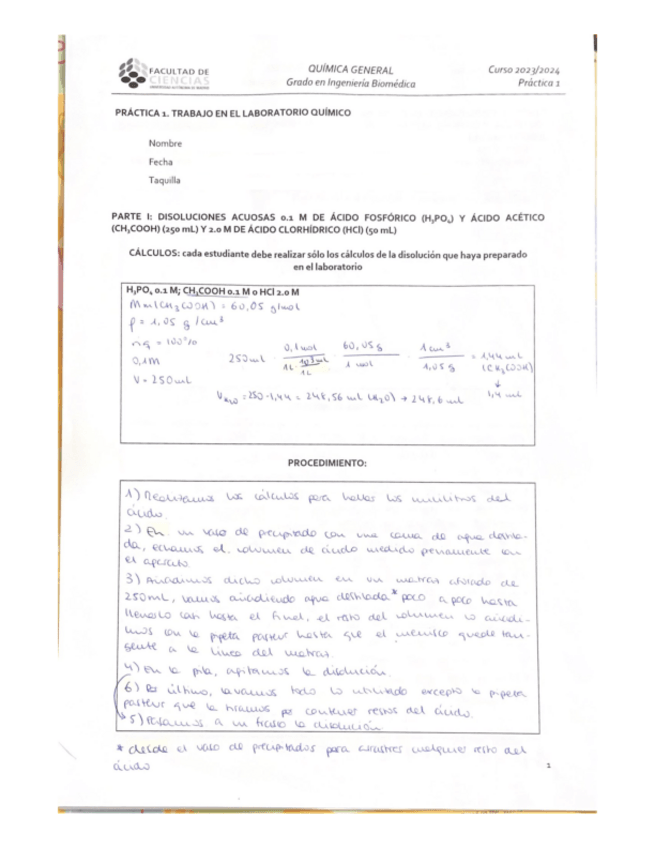 FACULTAD DE
CIENCIAS
QUÍMICA GENERAL
Grado en Ingeniería Biomédica
Curso 2023/2024
Práctica 1
PRÁCTICA 1. TRABAJO EN EL LABORATORIO QUÍMICO
Nombre
Fecha
Taquilla
PARTE I: DISOLUCIONES ACUOSAS 0.1 M DE ÁCIDO FOSFÓRICO (H₃PO₄) Y ÁCIDO ACÉTICO
(CH₃COOH) (250 mL) Y 2.0 M DE ÁCIDO CLORHÍDRICO (HCl) (50 mL)
CÁLCULOS: cada estudiante debe realizar sólo los cálculos de la disolución que haya preparado
en el laboratorio
H₃PO₄ 0.1 M; CH₃COOH 0.1 M o HCl 2.0 M
Mm(CH₃COOH) = 60,05 g/mol
ρ = 1,05 g/cm³
= 100%
0,1M
V = 250mL
250mL · 0,1mol / 1L · 10³mL / 1L · 60,05g / 1 mol · 1cm³ / 1,05g = 1,44 mL (CH₃COOH)
↓
1,4 mL
V H₂O = 250-1,44 = 248,56 mL (H₂O) → 248,6 mL
PROCEDIMIENTO:
1) Realizamos los cálculos para hallar los mililitros del
ácido.
2) En un vaso de precipitado con una cama de agua destila-
da, echamos el volumen de ácido medido previamente con
el aparato.
3) Añadimos dicho volumen en un matraz aforado de
250mL, vamos añadiendo agua destilada* poco a poco hasta
llenarlo casi hasta el final, el resto del volumen lo añadi-
mos con la pipeta pasteur hasta que el menisco quede tan-
gente a la línea del matraz.
4) En la pila, agitamos la disolución.
6) Por último, lavamos todo lo utilizado excepto la pipeta
pasteur que la tiramos por contener restos del ácido.
5) Pasamos a un frasco la disolución.
* desde el vaso de precipitados para arrastrar cualquier resto del
ácido
1